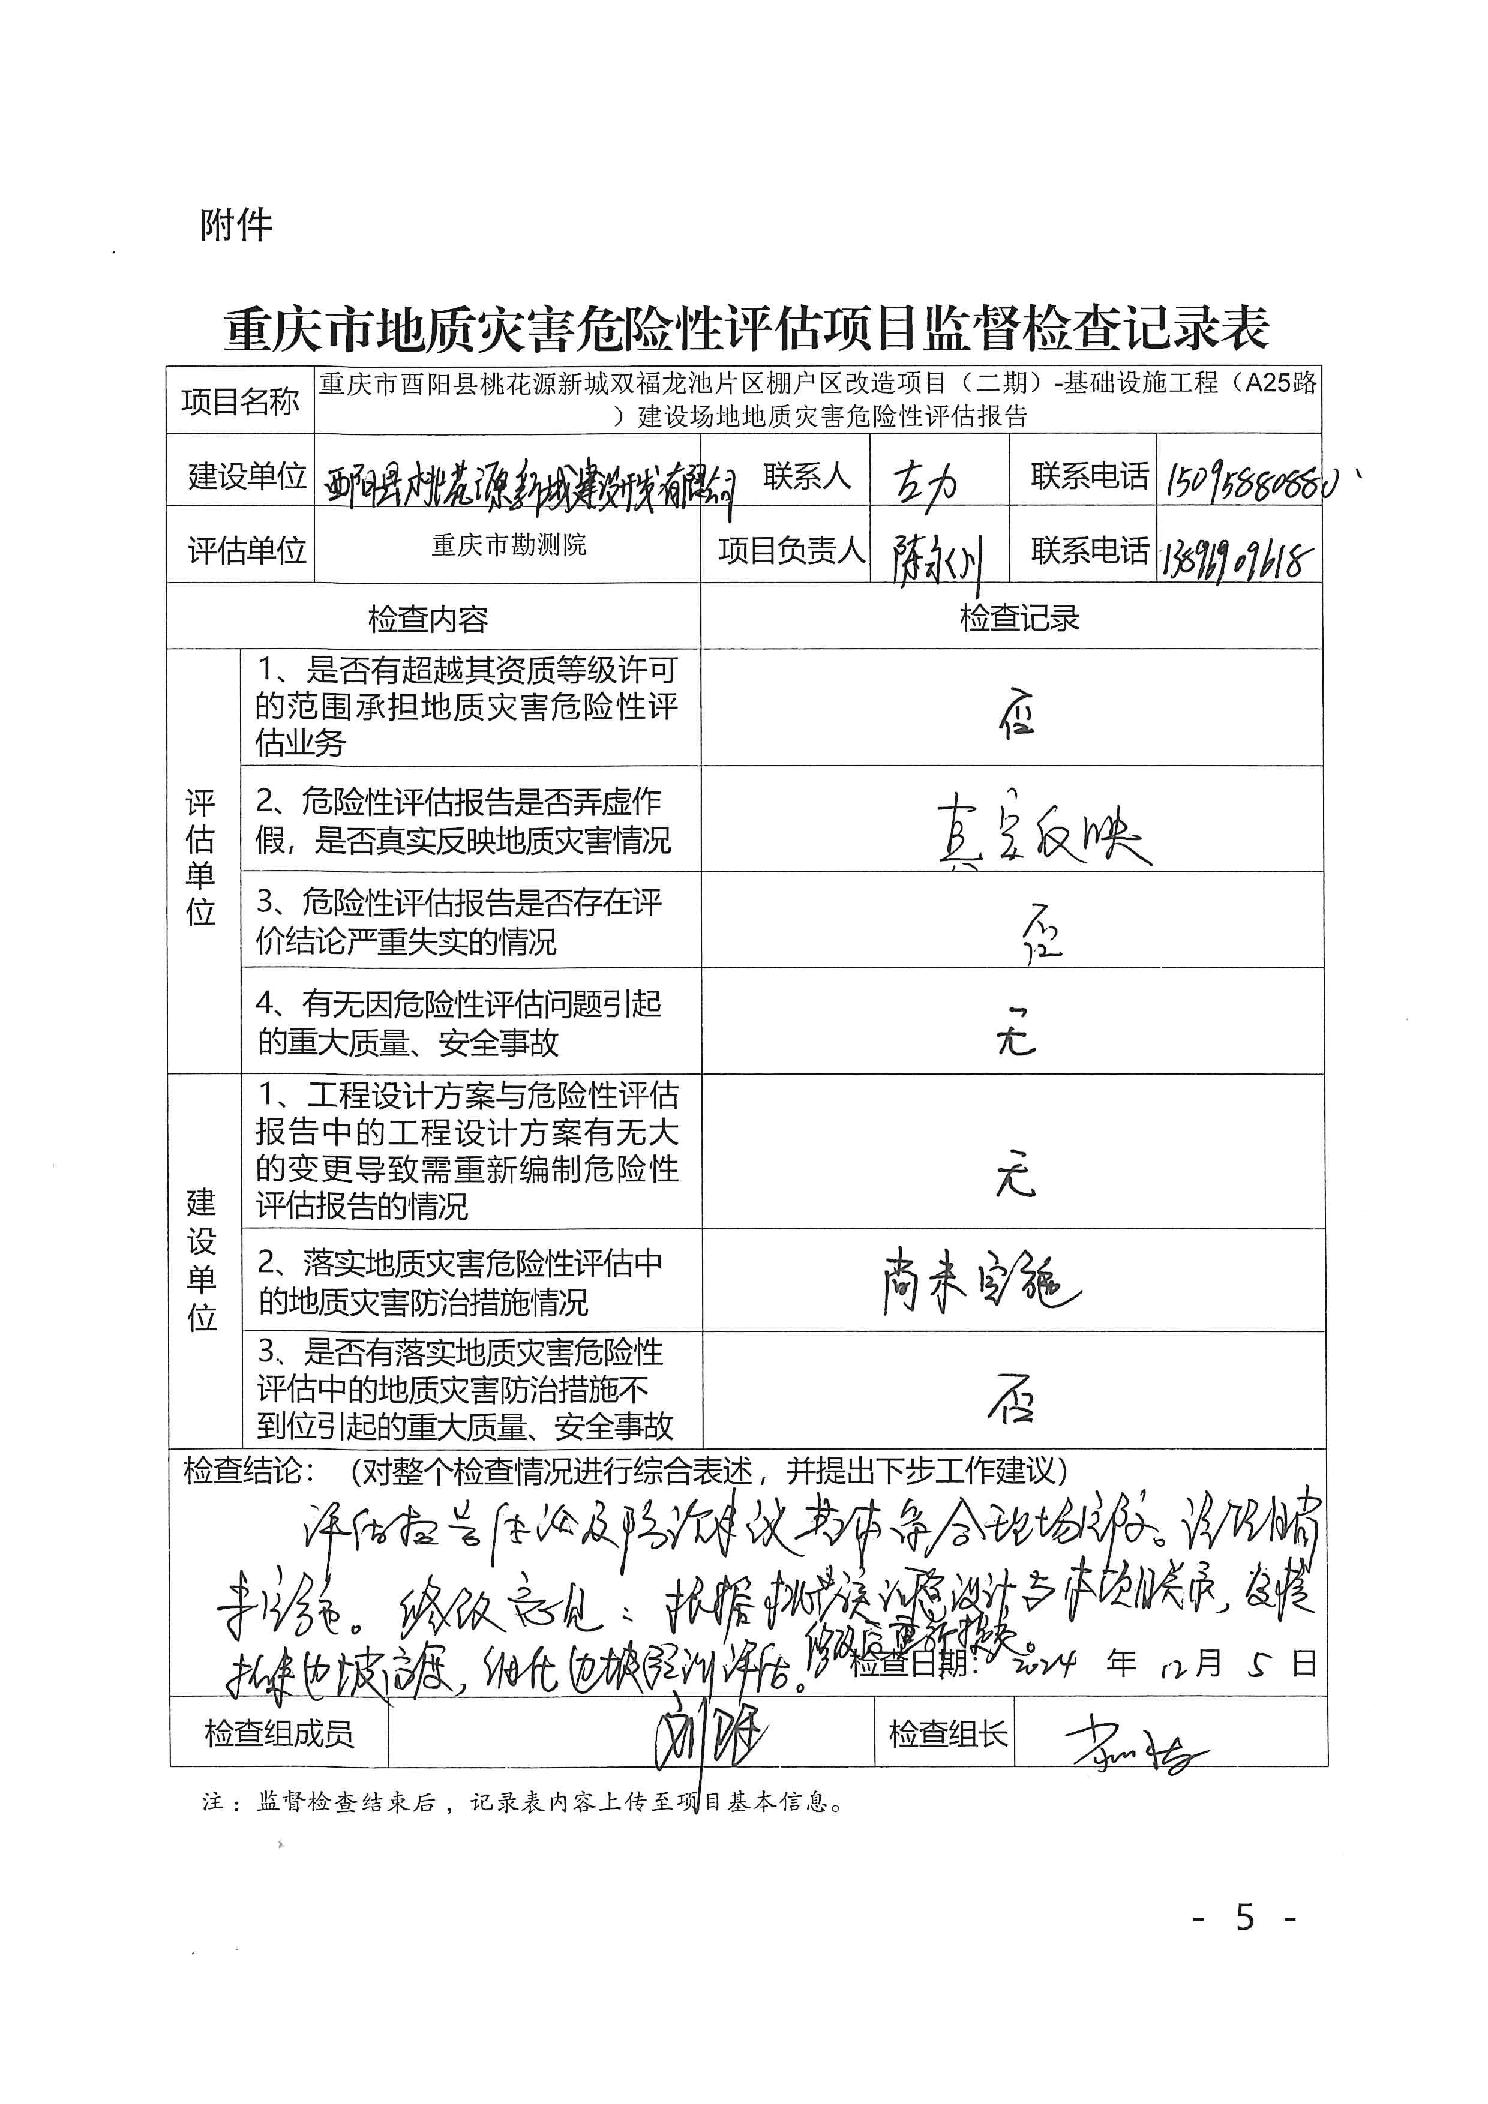 附件
重庆市地质灾害危险性评估项目监督检查记录表
项目名称
重庆市酉阳县桃花源新城双福龙池片区棚户区改造项目（二期）-基础设施工程（A25路
）建设场地地质灾害危险性评估报告
建设单位 酉阳县桃花源新城建设开发有限公司 联系人 古力 联系电话 15095880880
评估单位 重庆市勘测院 项目负责人 陈 联系电话 13896909618
检查内容 检查记录
评估单位
1、是否有超越其资质等级许可
的范围承担地质灾害危险性评
估业务
否
2、危险性评估报告是否弄虚作
假，是否真实反映地质灾害情况
真实反映
3、危险性评估报告是否存在评
价结论严重失实的情况
否
4、有无因危险性评估问题引起
的重大质量、安全事故
无
建设单位
1、工程设计方案与危险性评估
报告中的工程设计方案有无大
的变更导致需重新编制危险性
评估报告的情况
无
2、落实地质灾害危险性评估中
的地质灾害防治措施情况
尚未实施
3、是否有落实地质灾害危险性
评估中的地质灾害防治措施不
到位引起的重大质量、安全事故
否
检查结论：（对整个检查情况进行综合表述，并提出下步工作建议）
评估报告结论及防治建议基本符合现场实际。该项目尚
未实施。修改意见：根据 设计与本项目关系，
边坡高度，细化边坡 评估。修改后重新提交。
检查日期：2024 年 12 月 5 日
检查组成员 刘 检查组长
注：监督检查结束后，记录表内容上传至项目基本信息。
- 5 -